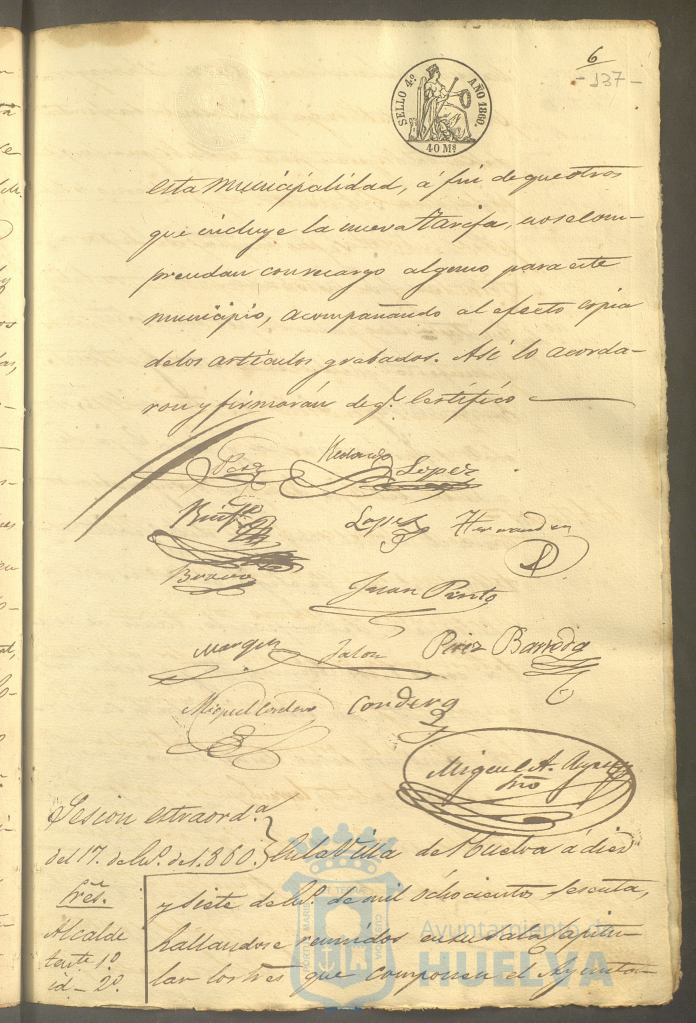 6
- 137 -
SELLO 4º AÑO 1860.
40 Ms
esta municipalidad, á fin de que otros
que incluye la nueva tarifa, no se com-
prendan con recargo alguno para este
municipio, acompañando al efecto copia
de los artículos grabados. Así lo acorda-
ron y firmarán de q.e Certifico
Redondo
Lopez
Lopez Hernandez
Juan Pinto
Marquez Jalon Perez Barreda
Miguel Cordero Condera
Miguel A.
Srio
Sesion estraord.a
del 17. de del 1860.
En la Villa de Huelva á diez
y siete de mil ochocientos sesenta,
Sres.
Alcalde
tente 1º
id - 2º
hallandose reunidos en su sala Capitu-
lar los Sres que componen el Ayunta-
Ayuntamiento de
HUELVA